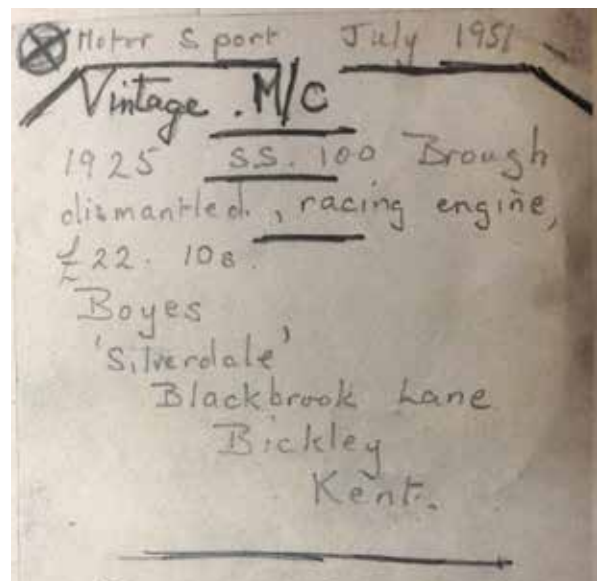 Motor Sport July 1951
Vintage . M/C
1925 S.S. 100 Brough
dismantled, racing engine,
£22. 10s.
Boyes
'Silverdale'
Blackbrook Lane
Bickley
Kent.